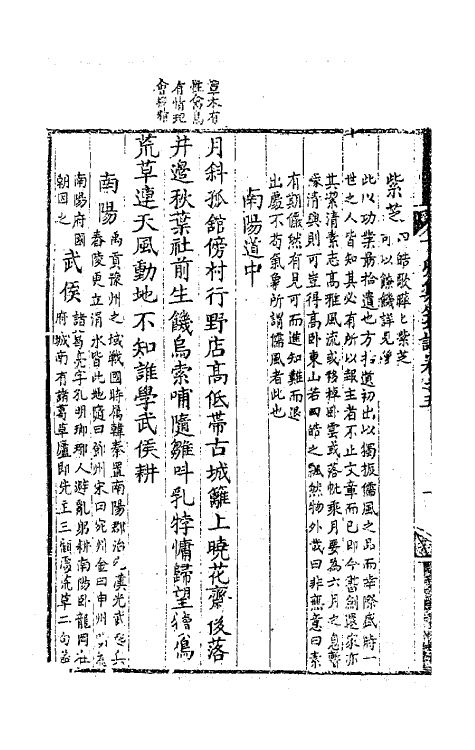 草木有
性禽鳥
有情
會
紫芝 四皓歌曄曄紫芝
可以餘饑詳見
此以功業最拾遺也方拾遺初出以獨振儒風之品而幸際盛時一
世之人皆知其必有所以報主者不止文章而已即今書劍還家亦
其潔清素志高雅風流或移棹卧雲或落帆乘月要為六月之息暫
乘清興則可豈得高卧東山若四皓之飄然物外哉曰非無意曰素
有期儼然有見可而進知難而退
出處不苟氣象所謂儒風者此也
南陽道中
月斜孤館傍村行野店高低帶古城籬上曉花齋後落
井邊秋葉社前生饑烏索哺隨雛叫乳牸慵歸望犢鳴
荒草連天風動地不知誰學武侯耕
南陽 禹貢豫州之域戰國時屬韓秦置南陽郡治宛漢光武起兵
舂陵更立淯水皆此地隨曰鄧州宋曰宛州金曰申州
南陽府國
朝因之
武侯 諸葛亮字孔明琅琊人避亂躬耕南陽卧龍岡在
府城南有諸葛草廬即先主三顧處荒草二句蓋